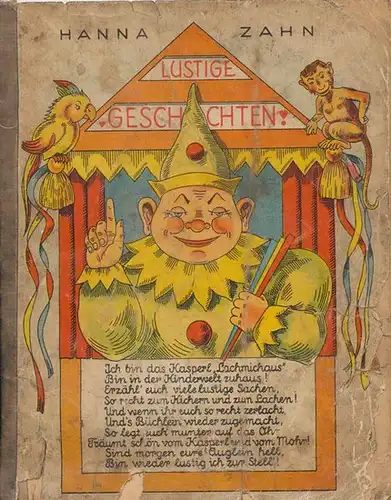 HANNA ZAHN
LUSTIGE
GESCHICHTEN!
Ich bin das Kasperl „Lachmichaus“
Bin in der Kinderwelt zuhaus!
Erzähl' euch viele lustige Sachen,
So recht zum Kichern und zum Lachen!
Und wenn ihr euch so recht zerlacht,
Und's Büchlein wieder zugemacht,
So legt euch munter auf das Oh
Träumt schön vom Kasperl und vom Mohr!
Sind morgen eure Äuglein hell,
Bin wieder lustig ich zur Stell'!